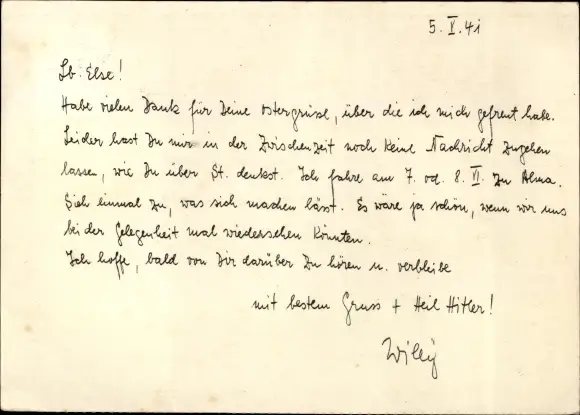 5. V. 41
Lb. Else!
Habe vielen Dank für Deine Ostergrüße, über die ich mich gefreut habe.
Leider hast Du mir in der Zwischenzeit noch keine Nachricht zugehen
lassen, wie Du über St. denkst. Ich fahre am 7. od. 8. VI. zu Alma.
Sieh einmal zu, was sich machen lässt. Es wäre ja schön, wenn wir uns
bei der Gelegenheit mal wiedersehen könnten.
Ich hoffe, bald von Dir darüber zu hören u. verbleibe
mit bestem Gruss + Heil Hitler!
Willy